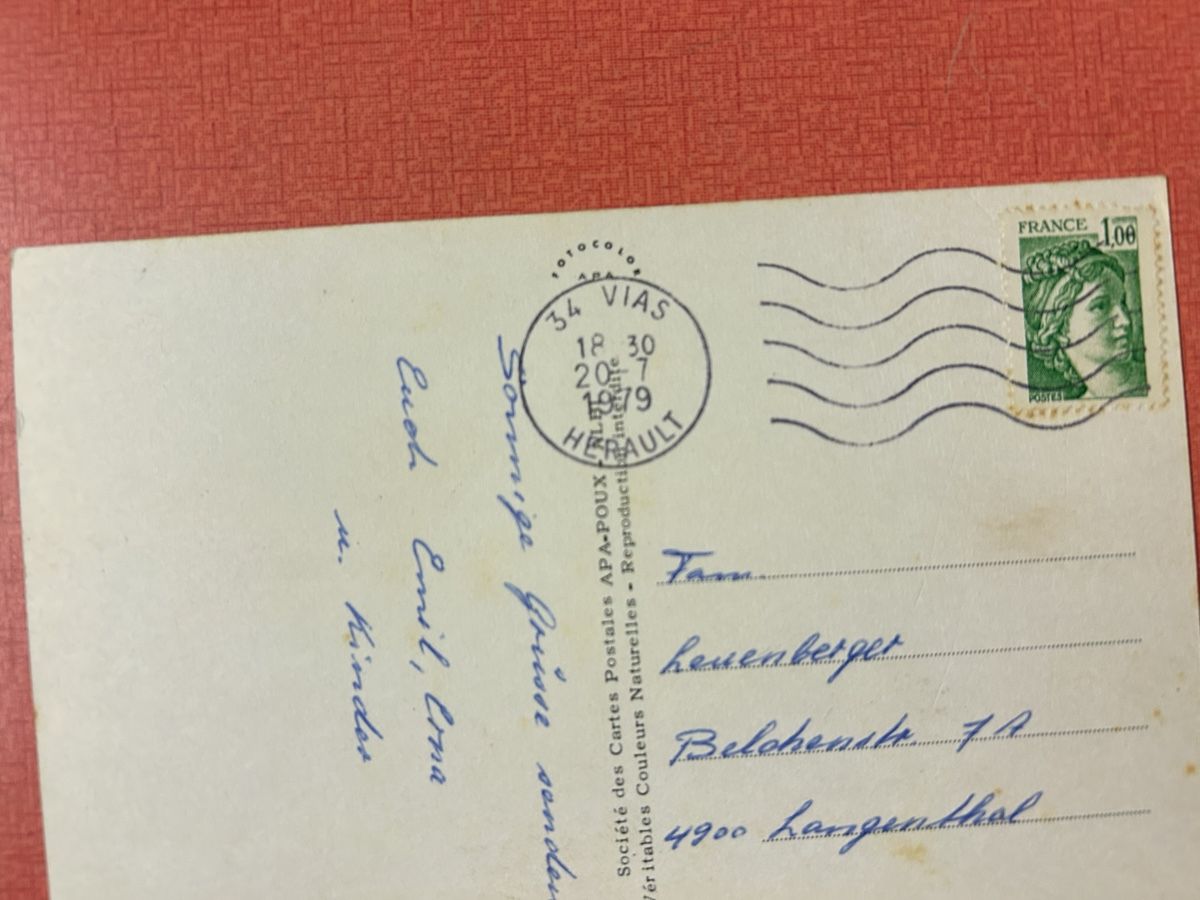 FOTOCOLOR
APA
34 VIAS
18 30
20 7
1979
HERAULT
FRANCE 1,00
POSTES
Sonnige Grüsse senden
Euch Emil,
u. Kinder
Société des Cartes Postales APA-POUX -
Véritables Couleurs Naturelles - Reproduction interdite
Fam.
Leuenberger
Belchenstr. 7A
4900 Langenthal